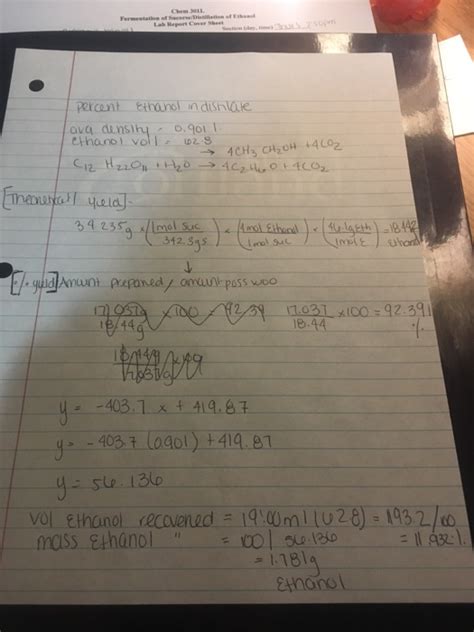 Chem 3011.
Fermentation of Sucrose/Distillation of Ethanol
Lab Report Cover Sheet
Section (day, time)
percent Ethanol in distilate
avg density = 0.901
ethanol vol = 62.8
→ 4CH3 CH2OH + 4CO2
C12 H22O11 + H2O → 4C2H6O + 4CO2
[Theoretical yield]
34.235g × (1mol suc / 342.3gs) × (4mol Ethanol / 1mol suc) × (46.1g Eth / 1mol E) = 18.442 ethanol
↓
[% yield] Amount prepared / amount poss ×100
17.037g / 18.44g ×100 = 92.39
17.037 / 18.44 ×100 = 92.391 %
y = -403.7 x + 419.87
y = -403.7 (0.901) + 419.87
y = 56.136
vol Ethanol recovered = 19.00ml (62.8) = 1193.2/100
mass Ethanol " = 100 / 56.136 = 11.932%
= 1.781g
Ethanol